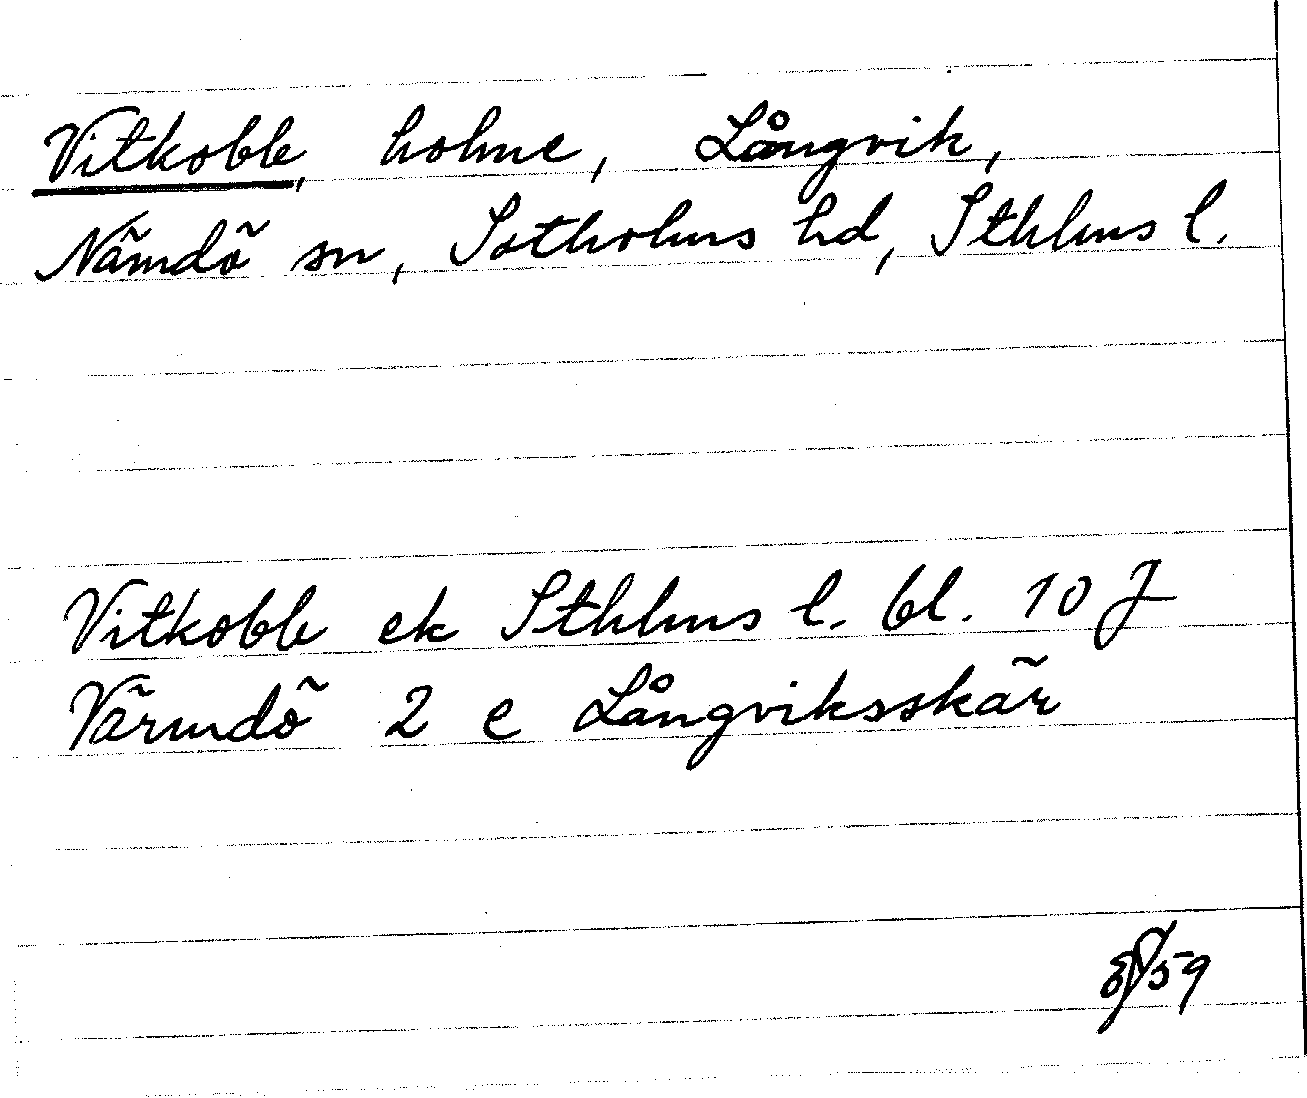 Vitkobb, holme, Långvik,
Nämdö sn, Sotholms hd, Sthlms l.
Vitkobb ek Sthlms l. bl. 10 J
Värmdö 2 e Långviksskär
59